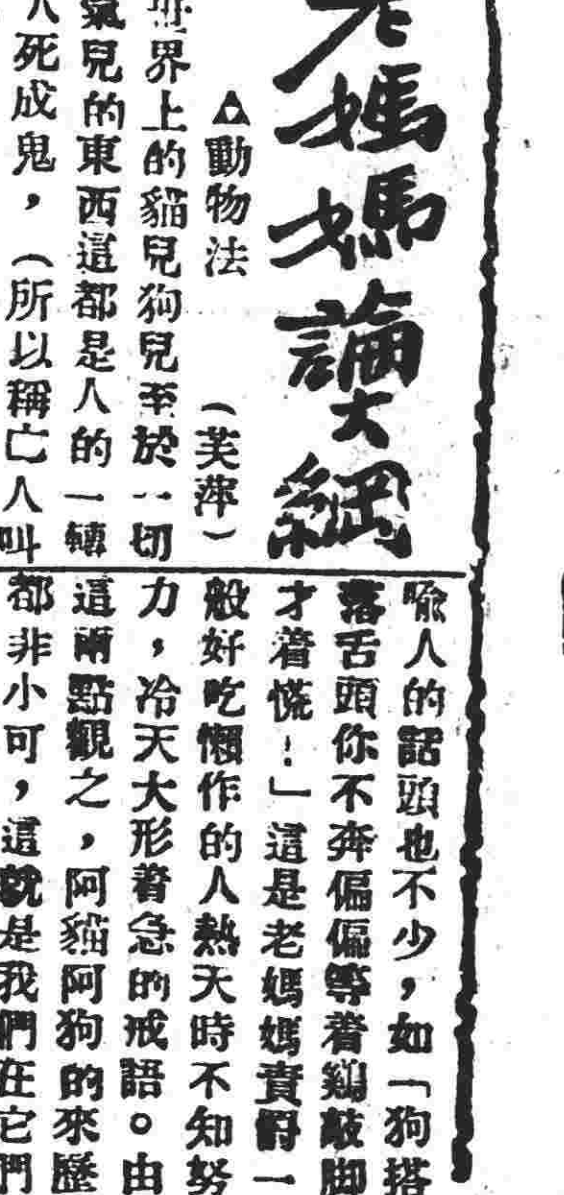 老媽媽論大綱
△動物法
(芙萍)
世界上的貓兒狗兒至於一切
氣兒的東西這都是人的一轉
人死成鬼，(所以稱亡人叫
喩人的話頭也不少，如「狗搭
落舌頭你不奔偏偏等着鷄敲脚
才着慌！」這是老媽媽責爵一
般好吃懶作的人熱天時不知努
力，冷天大形着急的戒語。由
這兩點觀之，阿貓阿狗的來歷
都非小可，這就是我們在它們